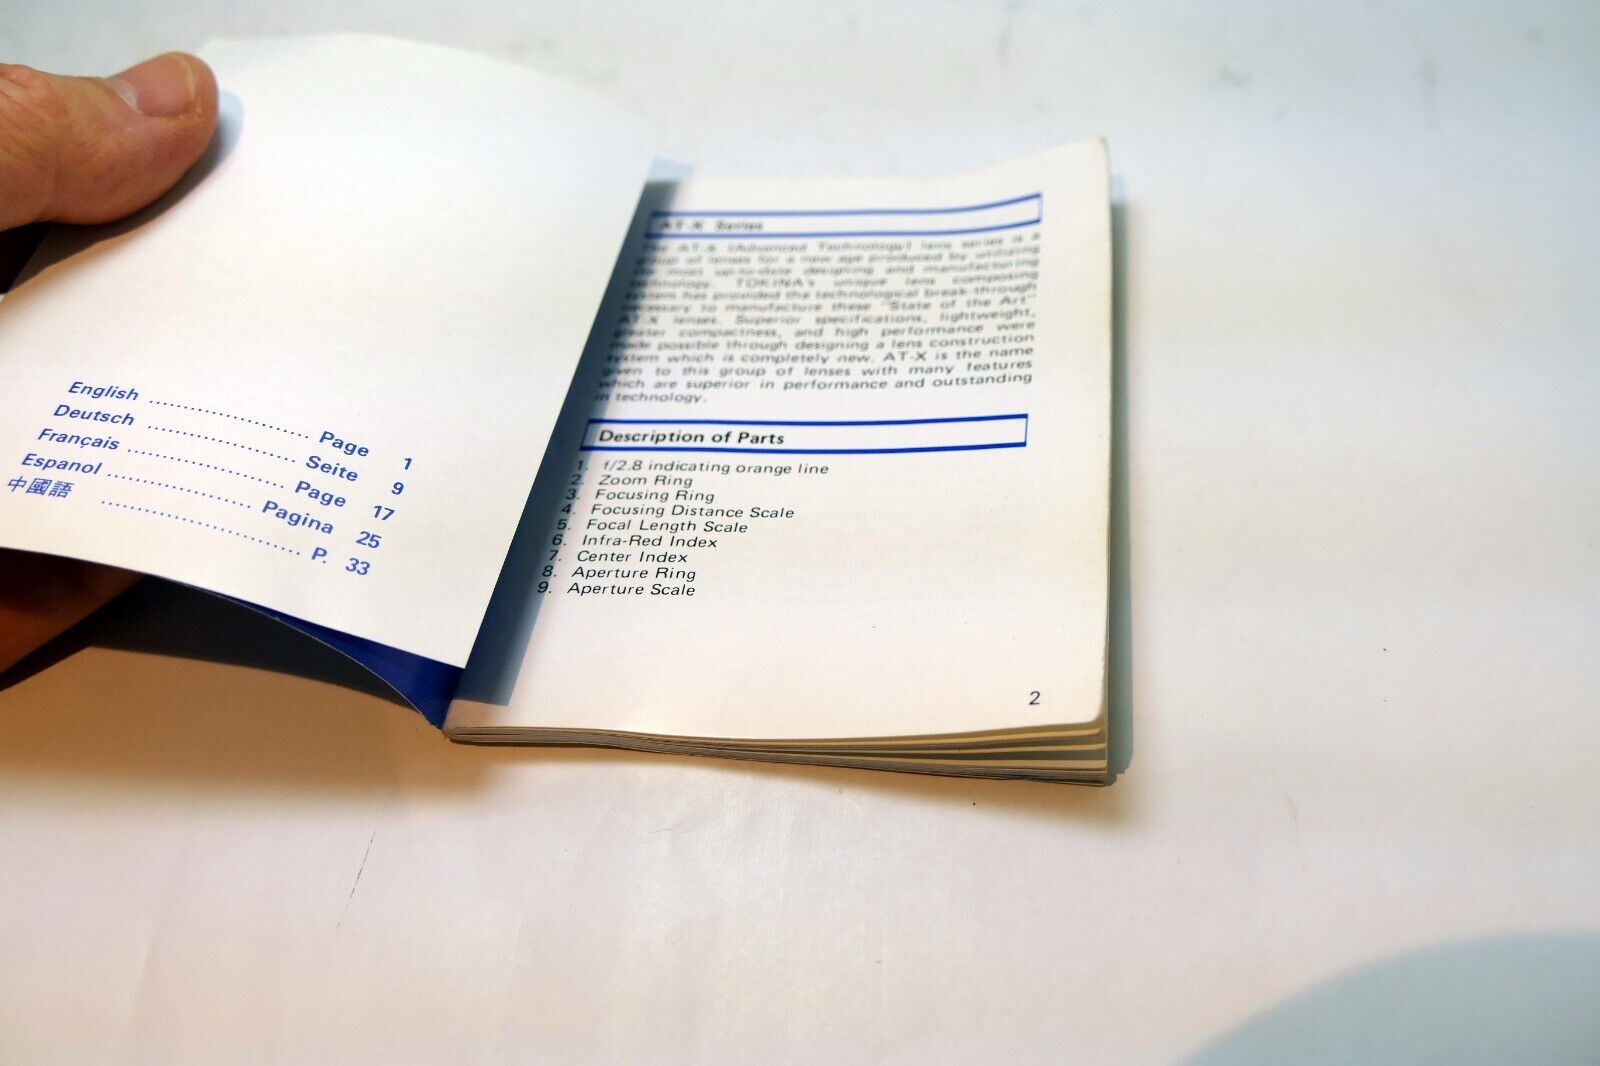 English .................... Page 1
Deutsch .................... Seite 9
Français .................... Page 17
Espanol .................... Pagina 25
中國語 .................... P. 33
AT-X Series
The AT-X (Advanced Technology) lens series is a
group of lenses for a new age produced by utilizing
the most up-to-date designing and manufacturing
technology. TOKINA's unique lens composing
system has provided the technological break-through
necessary to manufacture these "State of the Art"
AT-X lenses. Superior specifications, lightweight,
greater compactness, and high performance were
made possible through designing a lens construction
system which is completely new. AT-X is the name
given to this group of lenses with many features
which are superior in performance and outstanding
in technology.
Description of Parts
1. f/2.8 indicating orange line
2. Zoom Ring
3. Focusing Ring
4. Focusing Distance Scale
5. Focal Length Scale
6. Infra-Red Index
7. Center Index
8. Aperture Ring
9. Aperture Scale
2